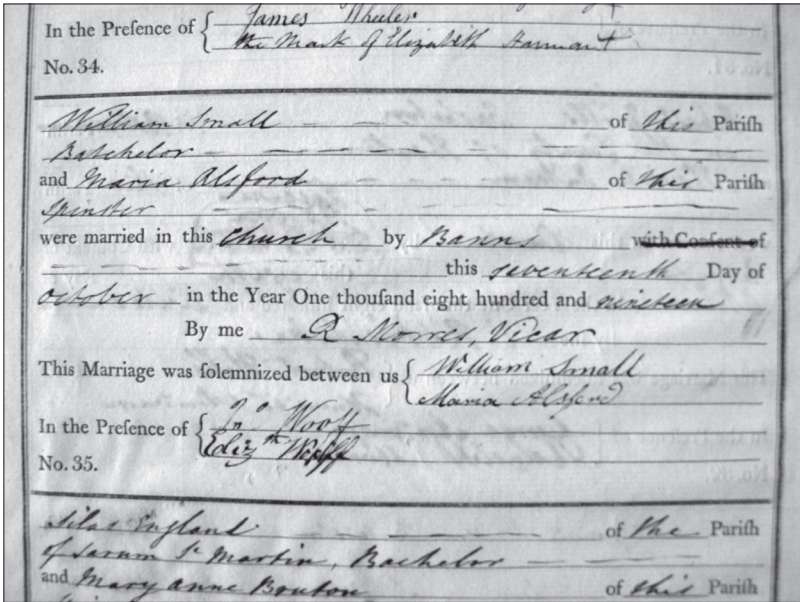 In the Presence of { James Wheeler
the Mark of Elizabeth Harmant
No. 34.
William Small of this Parish
Batchelor
and Maria Alsford of this Parish
Spinster
were married in this Church by Banns with Consent of
this seventeenth Day of
October in the Year One thousand eight hundred and nineteen
By me R Morres, Vicar
This Marriage was solemnized between us { William Small
Maria Alsford
In the Presence of { Jno Wooff
Eliz th Wooff
No. 35.
Silas England of the Parish
of Sarum St Martin, Bachelor
and Mary Anne Bruton of this Parish